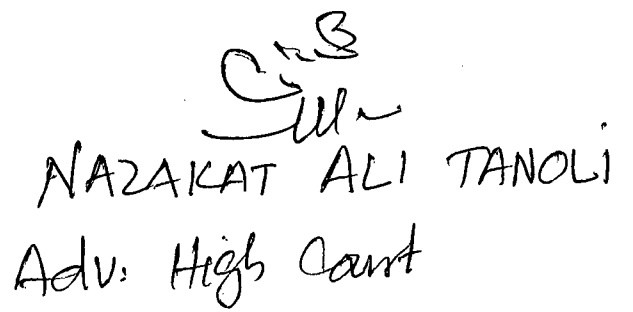 NAZAKAT ALI TANOLI
Adv: High Court